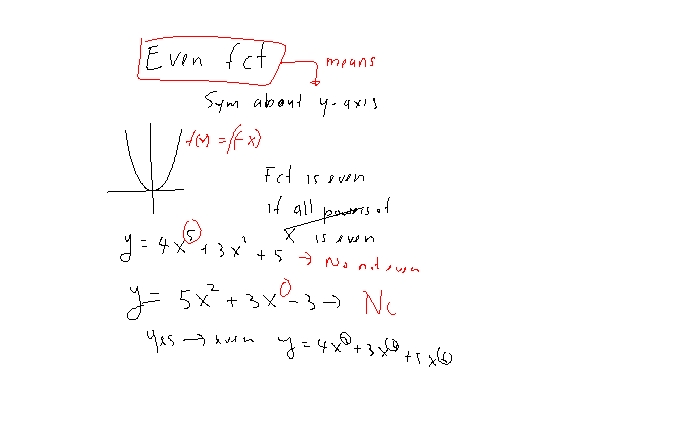 Even fct
means
Sym about y-axis
f(x) = f(-x)
Fct is even
if all powers of
x is even
y = 4x⁵ + 3x² + 5 → No not even
y = 5x² + 3x - 3 → No
yes → even y = 4x + 3x + 5x